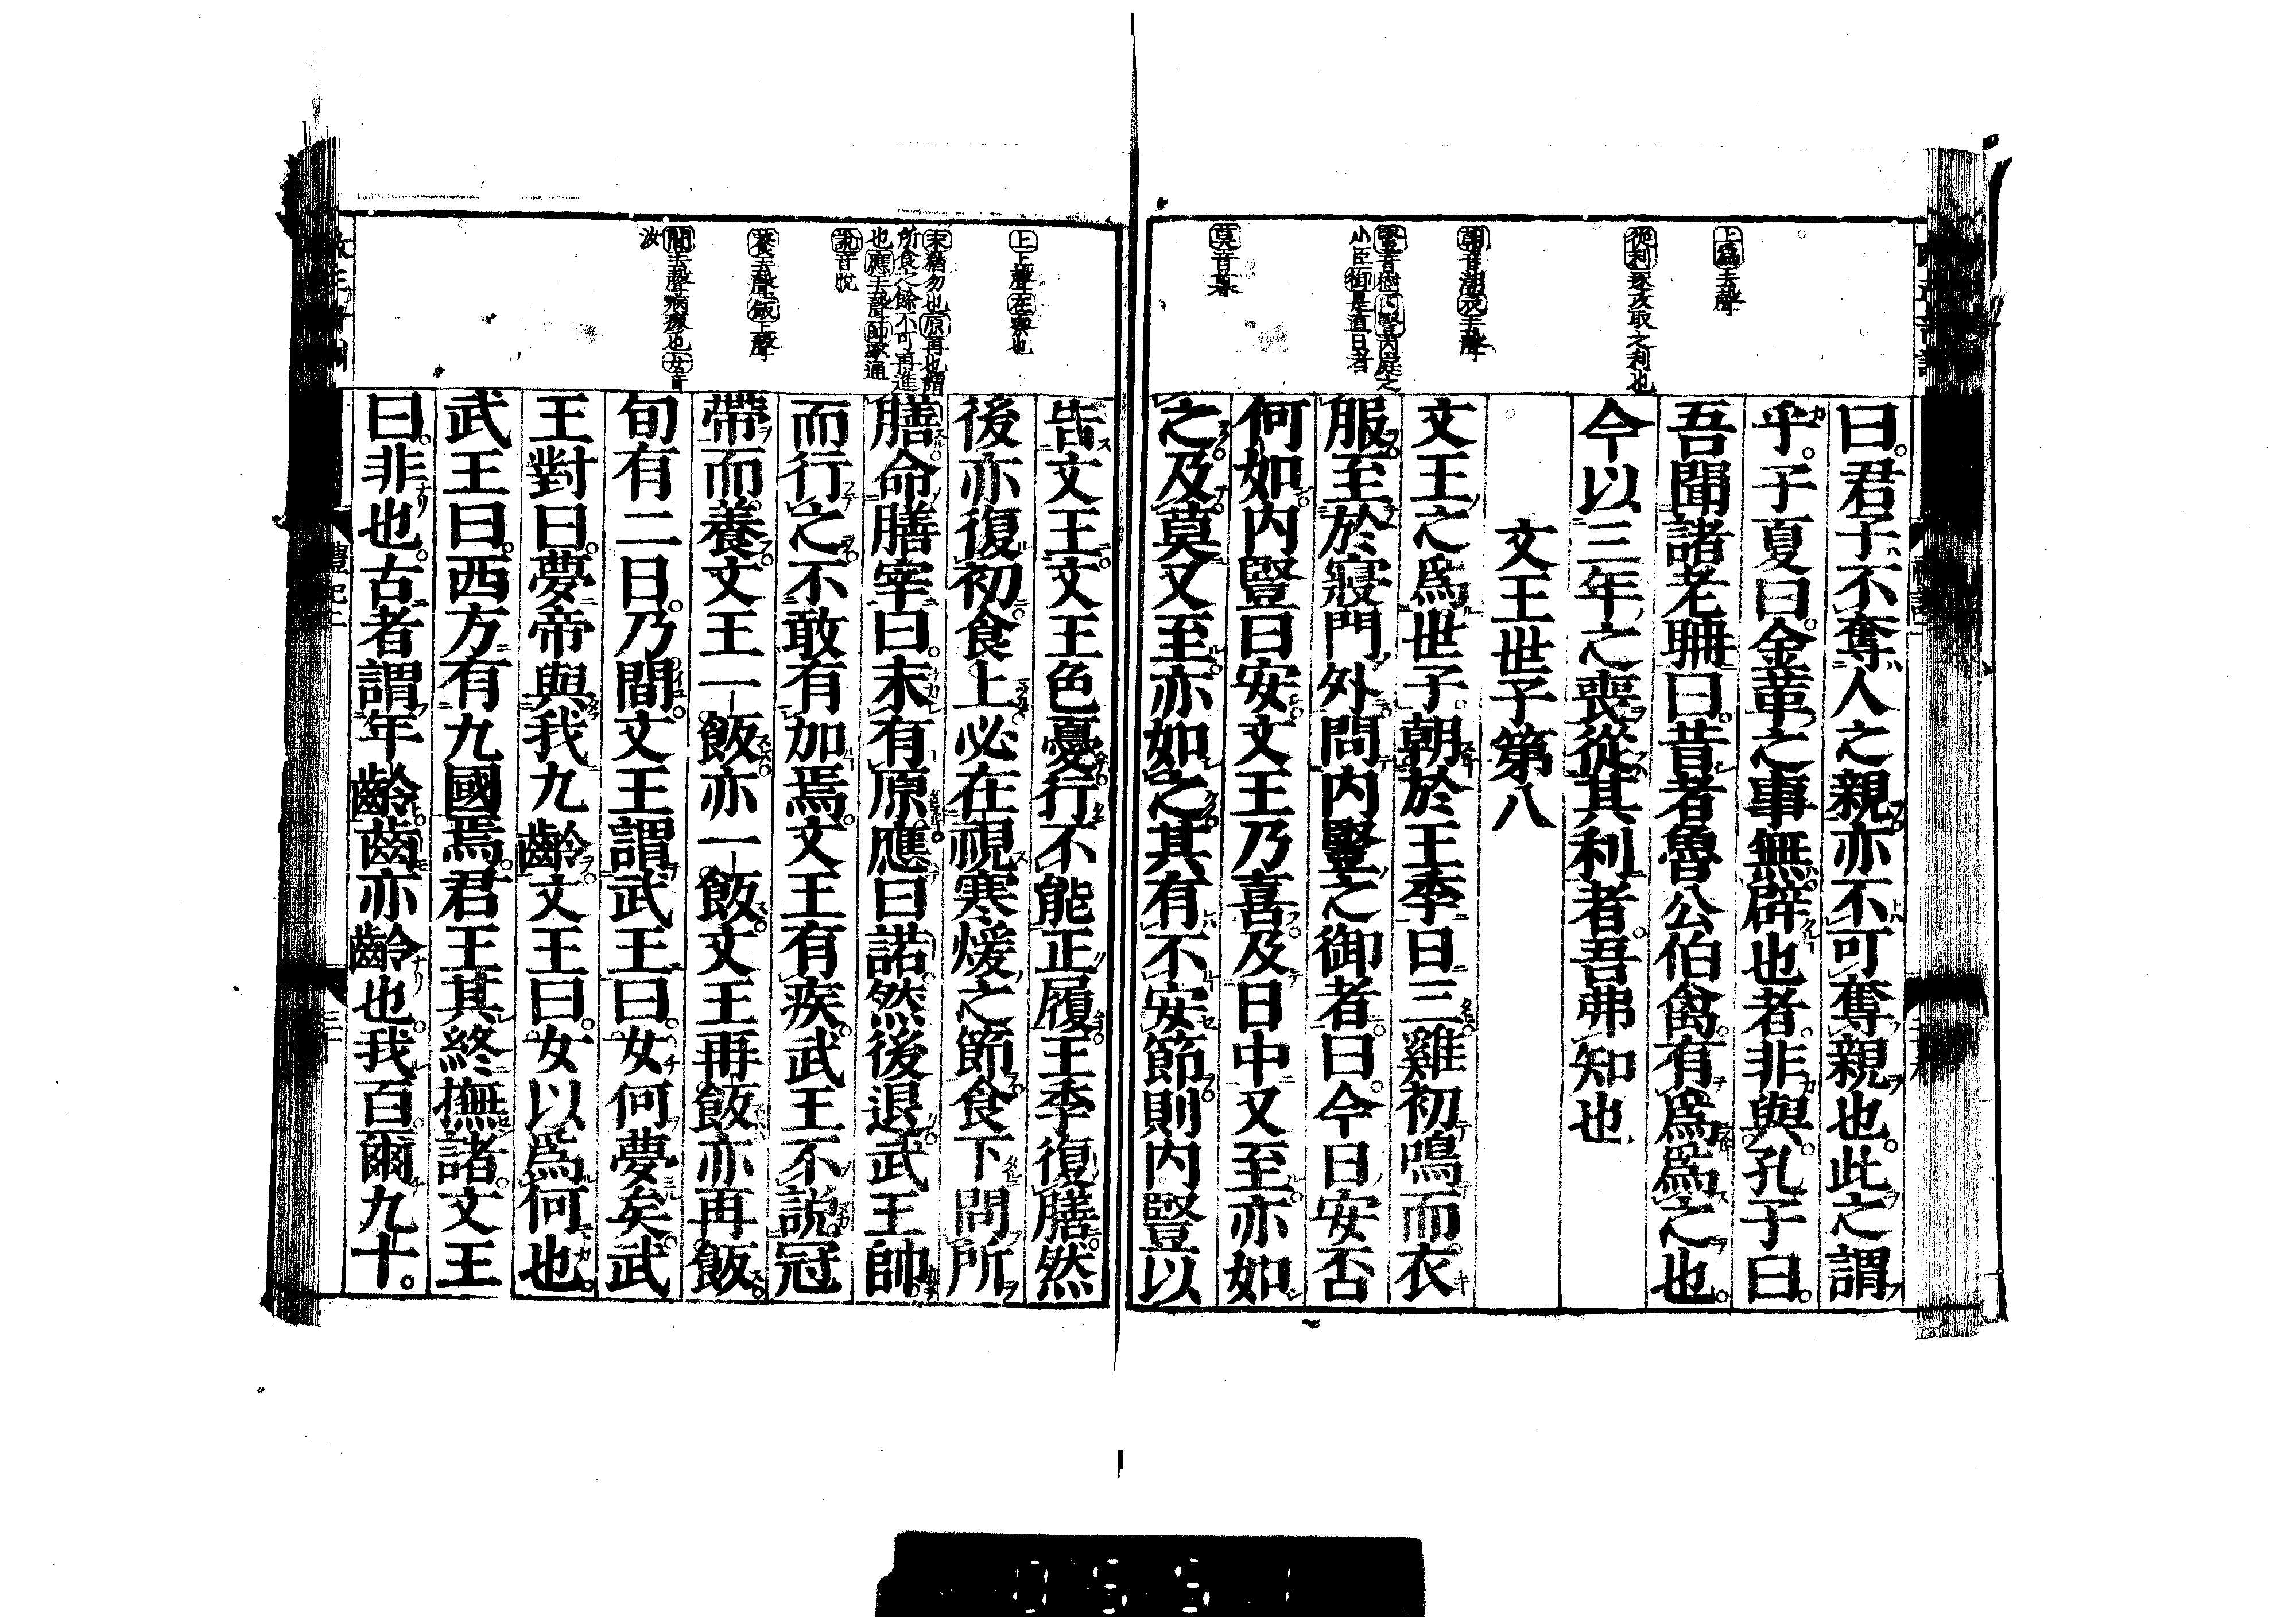 上爲去聲
從利逐攻取之利也
朝音潮衣去聲
豎音樹内豎内庭之
小臣御是直日者
莫音暮
曰。君子不奪人之親亦不可奪親也。此之謂
乎。子夏曰。金革之事無辟也者。非與。孔子曰。
吾聞諸老聃曰。昔者魯公伯禽有爲爲之也。
今以三年之喪從其利者。吾弗知也
文王世子第八
文王之爲世子朝於王季日三雞初鳴而衣
服至於寢門外問内豎之御者。曰。今日安否
何如内豎曰安文王乃喜及日中又至亦如
之及莫又至亦如之其有不安節則内豎以
上上聲在察也
末猶勿也原再也謂
所食之餘不可再進
也應去聲帥率通
說音脫
養去聲飯上聲
間去聲病瘳也女音
汝
告文王文王色憂行不能正履王季復膳然
後亦復初食上必在視寒煖之節食下問所
膳命膳宰曰。末有原應曰諾然後退武王帥
而行之不敢有加焉。文王有疾武王不說冠
帶而養文王一飯亦一飯文王再飯亦再飯
旬有二日。乃間。文王謂武王曰。女何夢矣。武
王對曰。夢帝與我九齡文王曰。女以爲何也。
武王曰。西方有九國焉。君王其終撫諸。文王
曰。非也。古者謂年齡齒亦齡也。我百爾九十。
禮記二